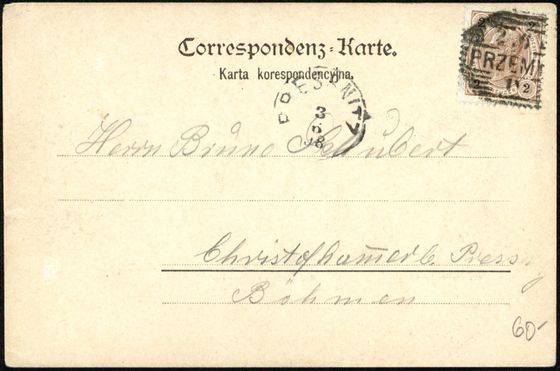 Correspondenz-Karte.
Karta korespondencyjna.
2 2
PRZEM
2 2
PRESSNITZ
3
5
98
Herrn Bruno Schubert
Christofhammer b. Press
Böhmen
60-